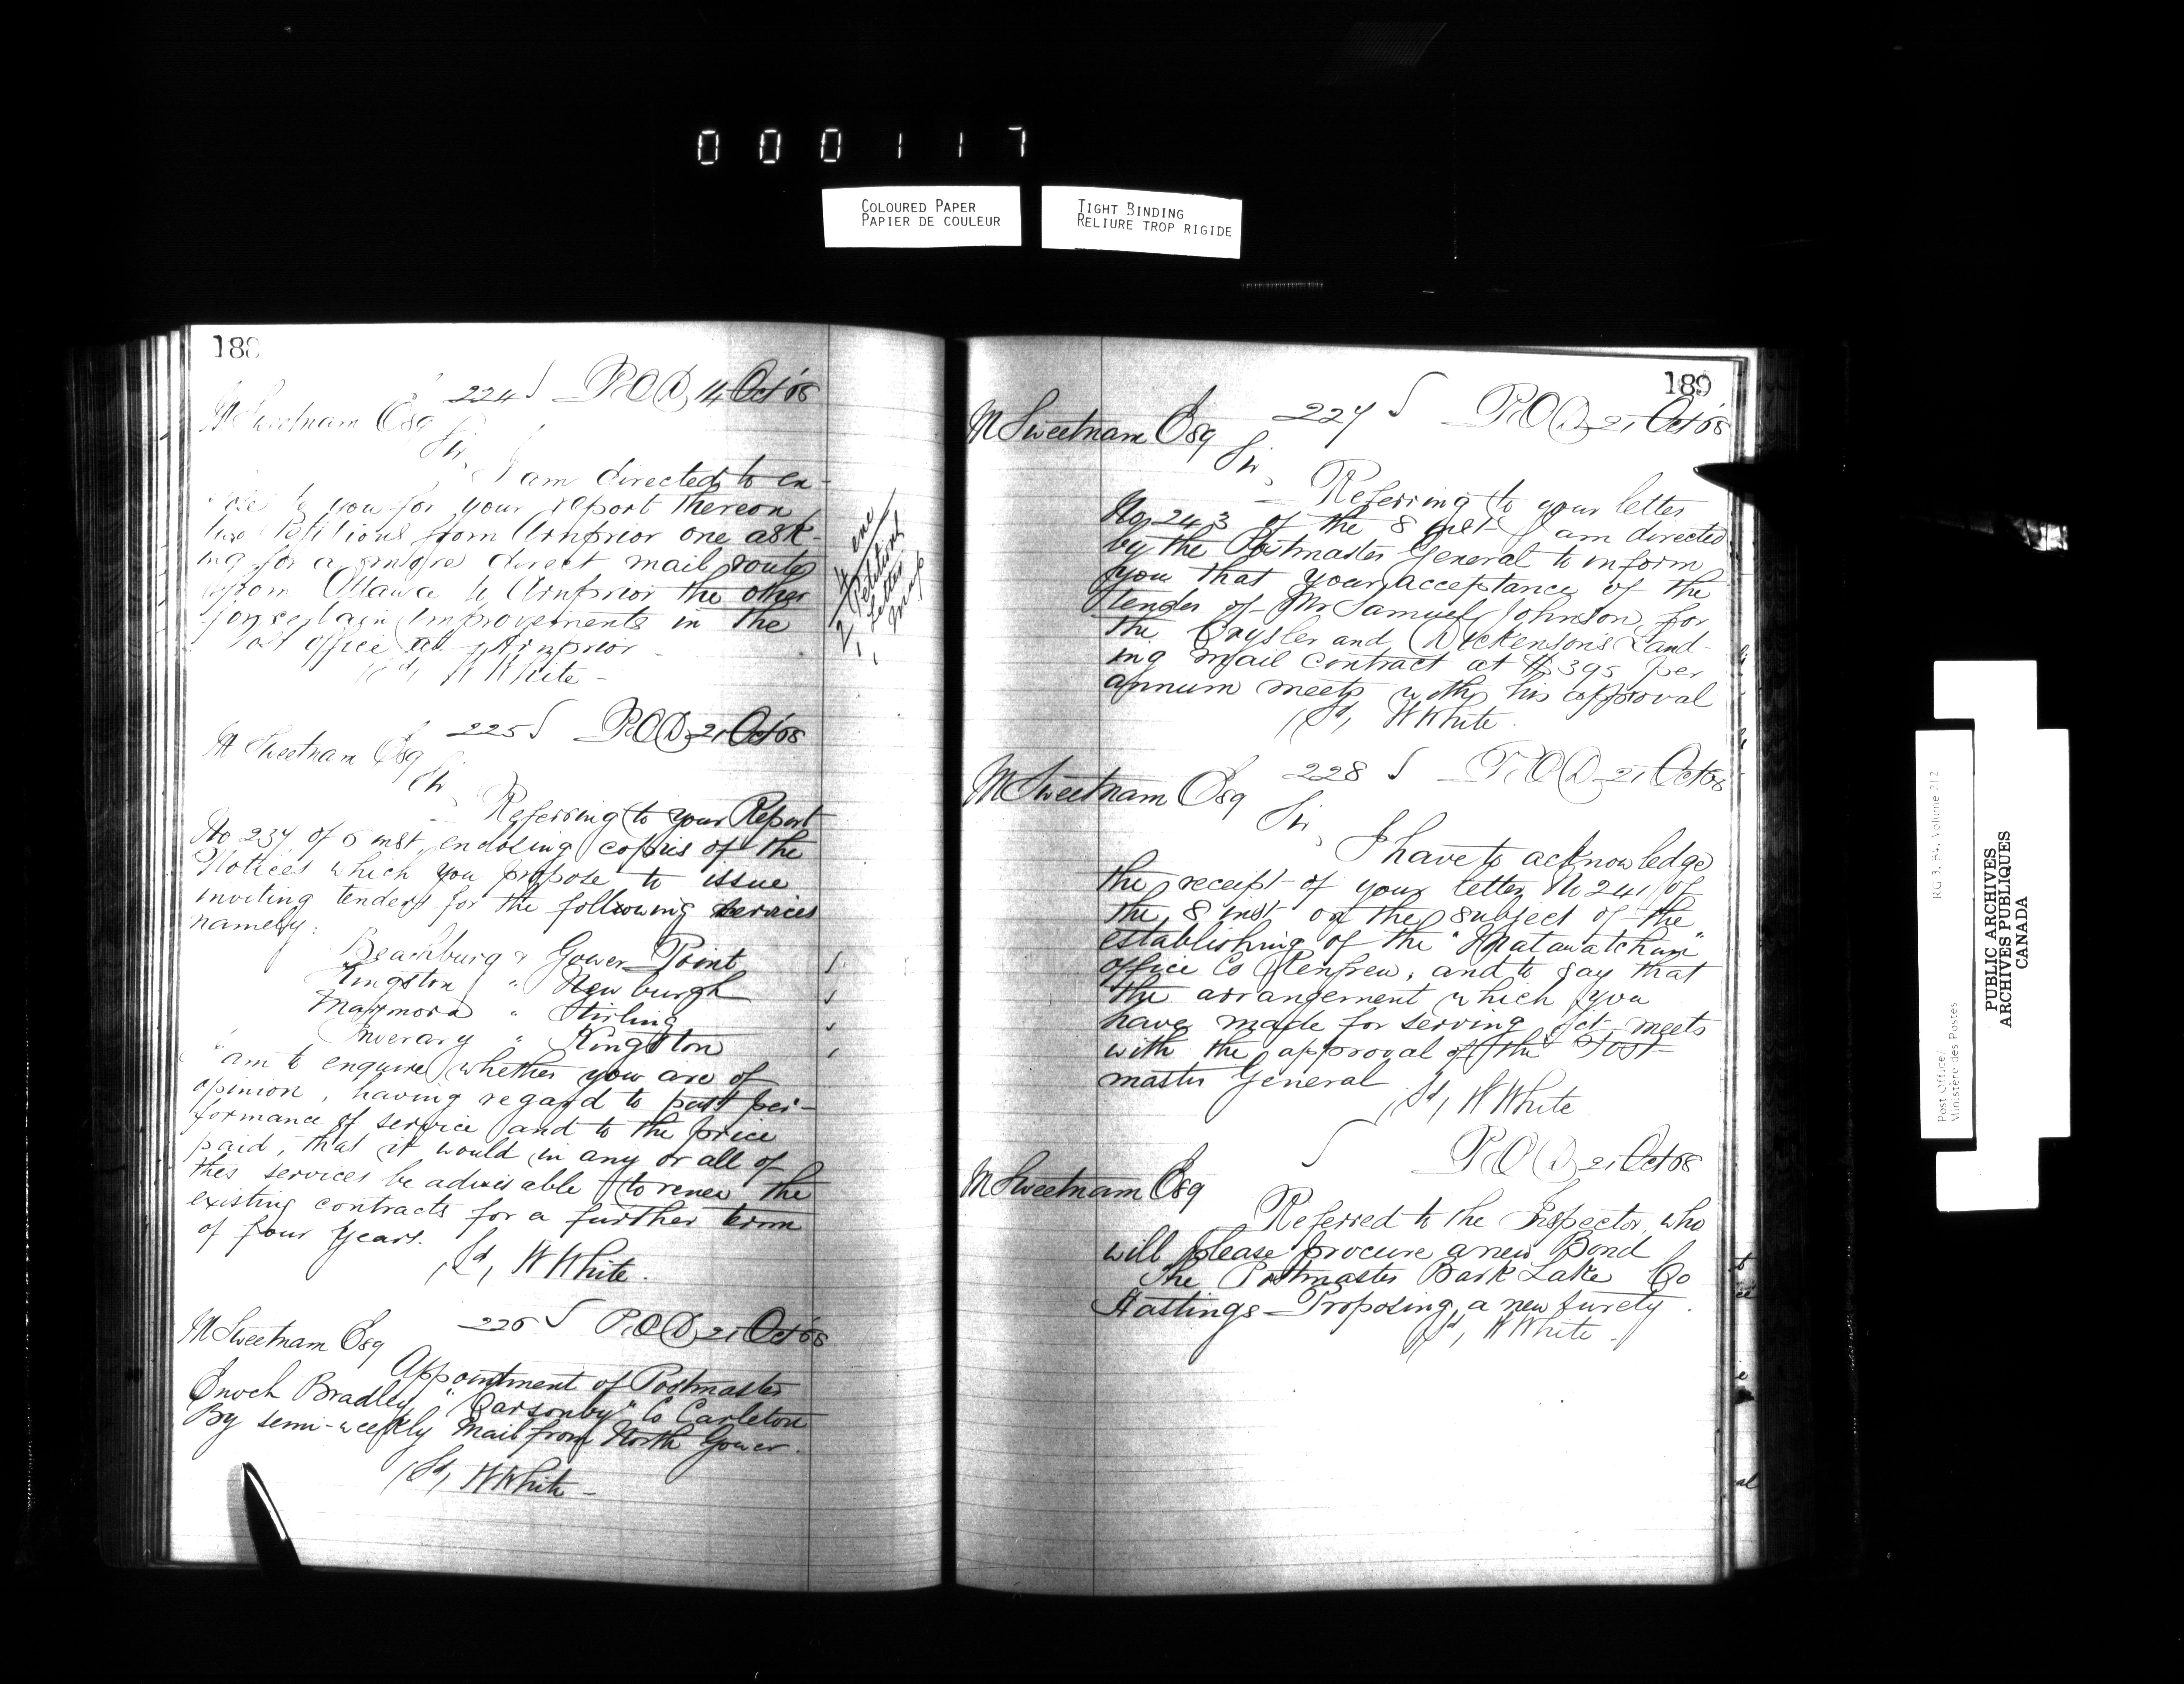 000117
COLOURED PAPER
PAPIER DE COULEUR
TIGHT BINDING
RELIURE TROP RIGIDE
188
224 POD, 14 Oct '68
M Sweetnam Esq
Sir,
I am directed to en-
to you for your report thereon
two Petitions from Arnprior one ask-
ing for a more direct mail route
from Ottawa to Arnprior the other
for certain improvements in the
Post Office at Arnprior
(Sd, W White -
4 enc
2 Petitions
1 Letter
1 Map
225 POD, 21 Oct '68
M Sweetnam Esq
Sir,
Referring to your Report
No 237 of 5 inst, enclosing copies of the
Notices which you propose to issue
inviting tenders for the following services
namely:
Beachburg & Gower Point
Kingston " Newburgh
Marmora " Stirling
Inverary " Kingston
I am to enquire whether you are of
opinion, having regard to past per-
formance of service and to the price
paid, that it would in any or all of
thes services be advisable to renew the
existing contracts for a further term
of four years.
(Sd, W White.
226 POD, 21 Oct '68
M Sweetnam Esq
Appointment of Postmaster
Enoch Bradley "Carsonby" Co Carleton
By semi-weekly Mail from North Gower.
(Sd, W White -
189
227 POD, 21 Oct '68
M Sweetnam Esq
Sir,
Referring to your letter
No 243 of the 8 inst I am directed
by the Postmaster General to inform
you that your acceptance of the
tender of Mr Samuel Johnson, for
the Crysler and Dickenson's Land-
ing Mail Contract at $395 per
annum meets with his approval
(Sd, W White.
228 POD, 21 Oct 68
M Sweetnam Esq
Sir,
I have to acknowledge
the receipt of your letter No 241 of
the 8 inst on the subject of the
establishing of the "Matawatchan"
office Co Renfrew, and to say that
the arrangement which you
have made for serving it, meets
with the approval of the Post-
master General
(Sd, W White
POD, 21 Oct 68
M Sweetnam Esq
Referred to the Inspector, who
will please procure a new Bond
The Postmaster Bark Lake Co
Hastings - Proposing a new surety.
(Sd, W White -
Post Office/
Ministère des Postes
RG 3, B4, Volume 212
PUBLIC ARCHIVES
ARCHIVES PUBLIQUES
CANADA